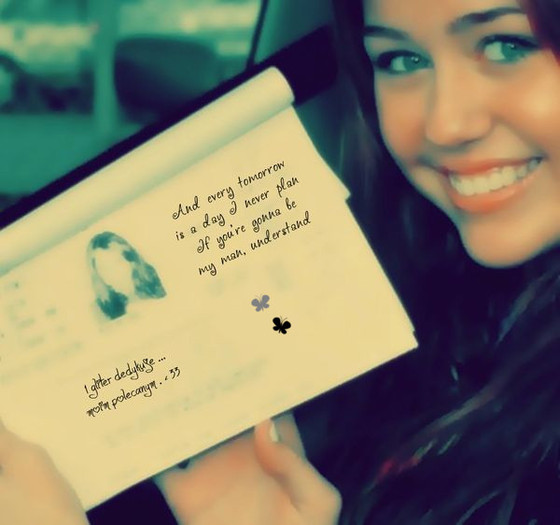 And every tomorrow
is a day I never plan
If you're gonna be
my man, understand
1 gliter dedykuje ...
moim polecanym . <33